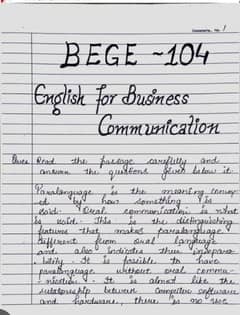 BEGE - 104
English for Business
Communication
Ques: Read the passage carefully and
answer the questions given below it.
Paralanguage is the meaning convey-
ed by how something is
said. Oral communication is what
is said. This is the distinguishing
features that makes paralanguage
different from oral language
and also indicates their inseparа-
bility. It is possible to have
paralanguage without oral commu-
nication. It is almost like the
relationship between computer software
and hardware, there is no use